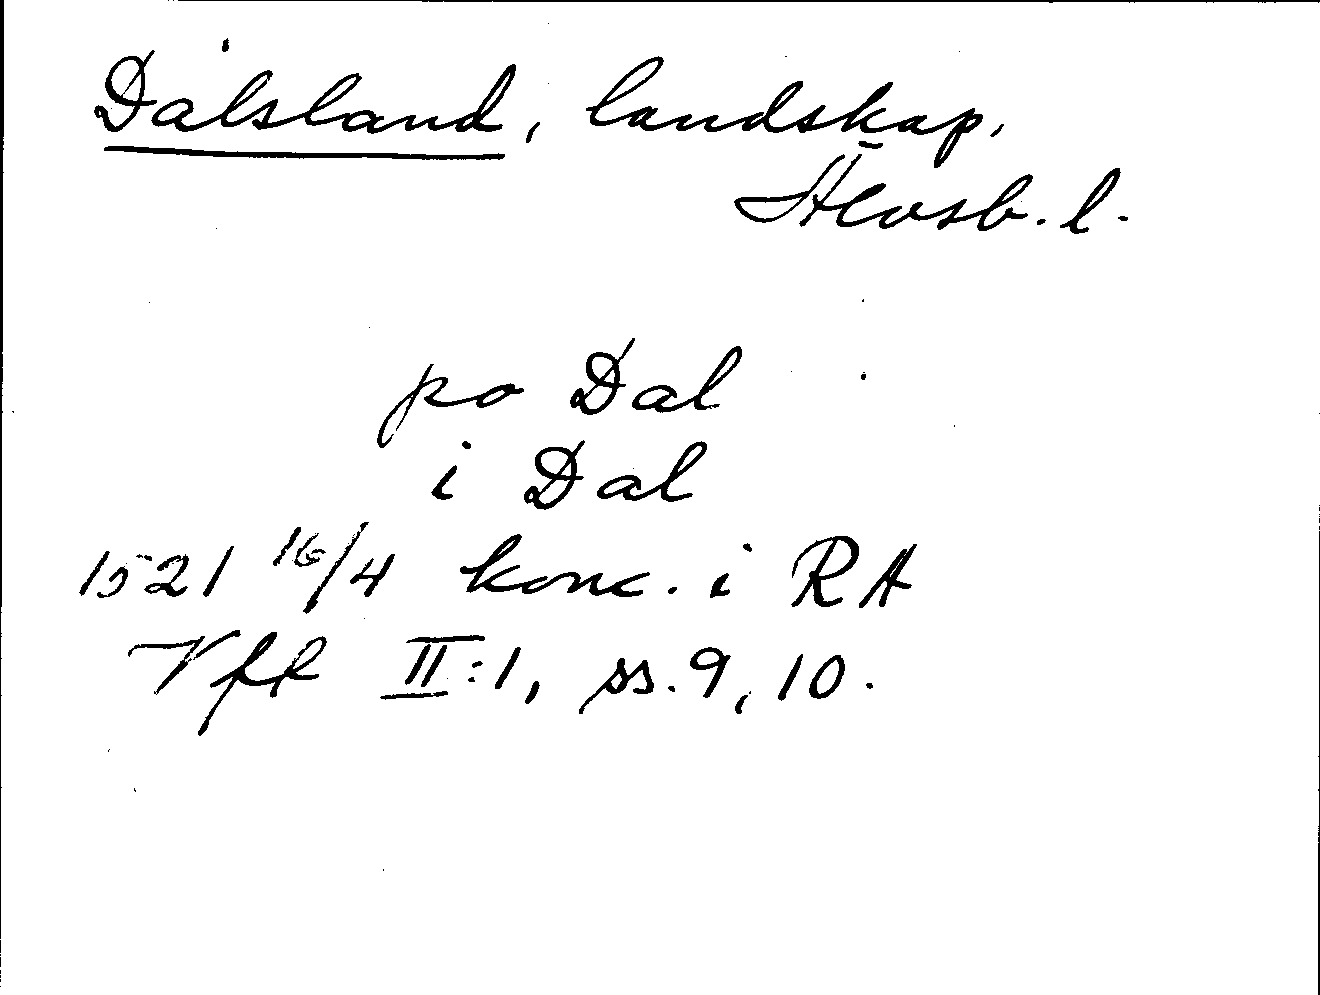 Dalsland, landskap,
Älvsb. l.
po Dal
i Dal
1521 16/4 konc. i RA
Vfr II:1, ss. 9, 10.